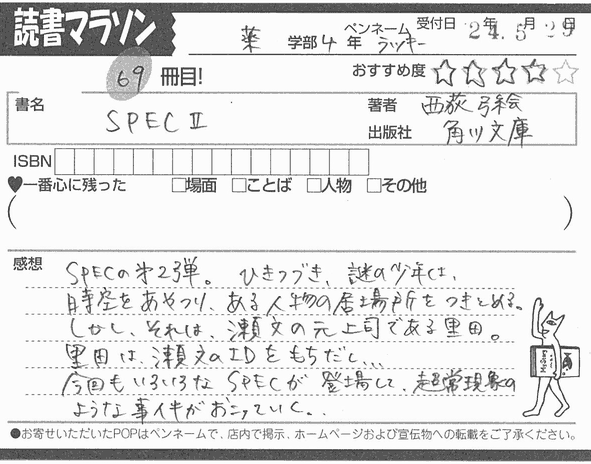 読書マラソン
薬 学部 4 年 ペンネーム ラッキー 受付日 24年 5月 29日
69 冊目! おすすめ度 ☆☆☆☆☆
書名 SPEC II
著者 西荻弓絵
出版社 角川文庫
ISBN
♥一番心に残った □場面 □ことば □人物 □その他
( )
感想
SPECの第2弾。ひきつづき、謎の少年は、
時空をあやつり、ある人物の居場所をつきとめる。
しかし、それは、瀬文の元上司である里田。
里田は、瀬文のIDをもちだし...
今回もいろいろなSPECが登場して、超常現象の
ような事件がおこっていく..
●お寄せいただいたPOPはペンネームで、店内で掲示、ホームページおよび宣伝物への転載をご了承ください。